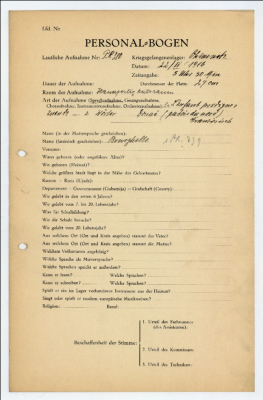 Lfd. Nr.
PERSONAL-BOGEN
Lautliche Aufnahme Nr.: PK 780 Kriegsgefangenenlager: Chemnitz
Datum: 22/II 1916
Zeitangabe: 5 Uhr 30 Min
Dauer der Aufnahme: Durchmesser der Platte: 27 cm
Raum der Aufnahme:
Art der Aufnahme (Sprechaufnahme, Gesangsaufnahme, L'Enfant prodigue
Choraufnahme, Instrumentenaufnahme, Orchesteraufnahme):
erzählt (patois du nord)
Französisch
Name (in der Muttersprache geschrieben):
Name (lateinisch geschrieben):
Vorname:
Wann geboren (oder ungefähres Alter)?
Wo geboren (Heimat)?
Welche größere Stadt liegt in der Nähe des Geburtsortes?
Kanton — Kreis (Ujedz):
Departement — Gouvernement (Gubernija) — Grafschaft (County):
Wo gelebt in den ersten 6 Jahren?
Wo gelebt vom 7. bis 20. Lebensjahr?
Was für Schulbildung?
Wo die Schule besucht?
Wo gelebt vom 20. Lebensjahr?
Aus welchem Ort (Ort und Kreis angeben) stammt der Vater?
Aus welchem Ort (Ort und Kreis angeben) stammt die Mutter?
Welchem Volksstamm angehörig?
Welche Sprache als Muttersprache?
Welche Sprachen spricht er außerdem?
Kann er lesen? Welche Sprachen?
Kann er schreiben? Welche Sprachen?
Spielt er ein im Lager vorhandenes Instrument aus der Heimat?
Singt oder spielt er modern europäische Musikweisen?
Religion: Beruf:
Beschaffenheit der Stimme:
1. Urteil des Fachmannes
(des Assistenten):
2. Urteil des Kommissars:
3. Urteil des Technikers: